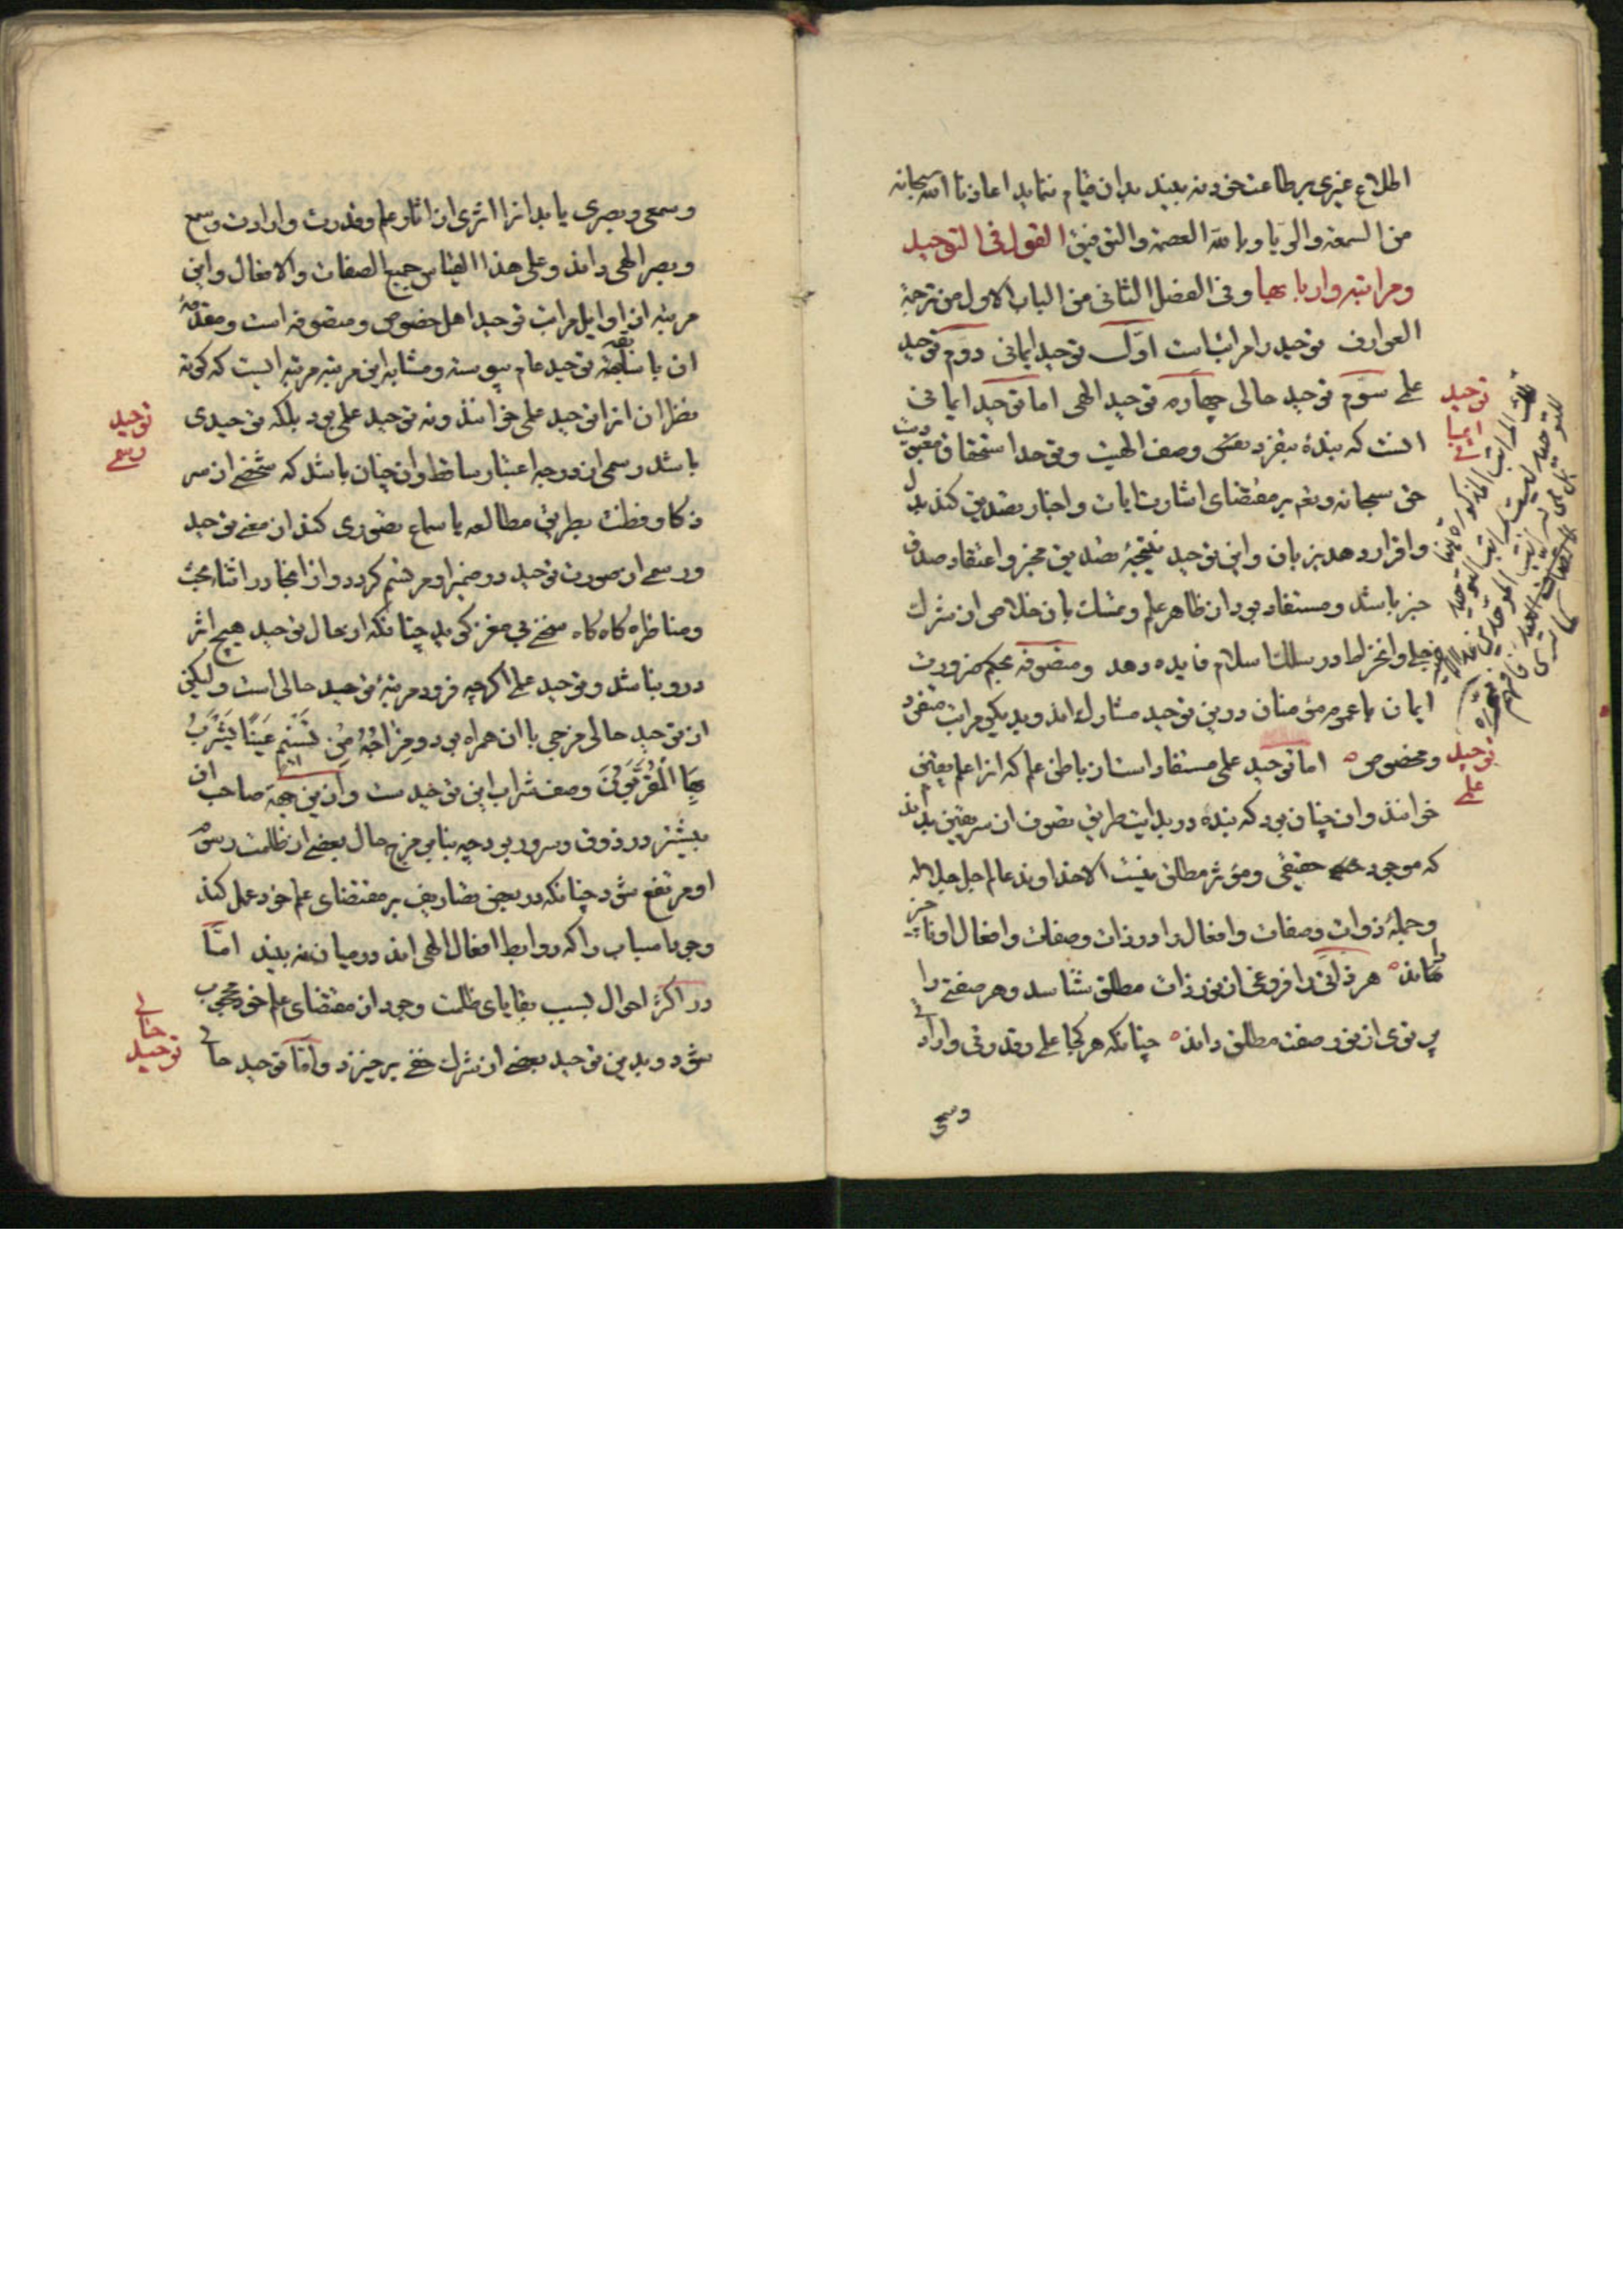 اطلاع غیری بر طاعت خود نه بیند بدان قیام ننماید اعاذنا الله سبحانه
من السمعة والریا وبالله العصمة والتوفیق القول فی التوحید
ومراتبه واربابها وفی الفصل الثانی من الباب الاول من ترجمة
العوارف توحید را مراتب است اول توحید ایمانی دوم توحید
علمی سوم توحید حالی چهارم توحید الهی اما توحید ایمانی
انست که بندهٔ بتفرد وصف الهیت وتوحد استحقاق معبودیت
حق سبحانه وتعم بر مقتضای اشارت ایات واخبار تصدیق کند بدل
واقرار دهد بزبان واین توحید نتیجهٔ تصدیق مخبر واعتقاد صدق
خبر باشد ومستفاد بود از ظاهر علم وتمسک بان خلاص از شرک
جلی وانخراط در سلک اسلام فایده دهد ومتصوفه بحکم ضرورت
ایمان با عموم مؤمنان درین توحید مشارک اند وبدیکر مراتب متفرد
ومخصوص اما توحید علمی مستفاد است از باطن علم که انرا علم یقین
خوانند وان چنان بود که بنده در بدایت طریق تصوف از سر یقین بداند
که موجود حقیقی ومؤثر مطلق نیست الا خداوند عالم جل جلاله
وجملهٔ ذوات وصفات وافعال را در ذات وصفات وافعال او ناچیز
داند هر ذاتی را فروغی از نور ذات مطلق شناسد وهر صفتی را
پرتوی از نور صفت مطلق داند چنانکه هر کجا علمی وقدرتی وارادتی
وسمعی
توحید
ایمانی
توحید
علمی
وسمعی وبصری یابد انرا اثری از اثار علم وقدرت وارادت وسمع
وبصر الهی داند وعلی هذا القیاس جمیع الصفات والافعال واین
مرتبه از اوایل مراتب توحید اهل خصوص ومتصوفه است ومقدمهٔ
ان با ساقهٔ توحید عام پیوسته ومشابه این مرتبه مرتبه ایست که کوته
نظران انرا توحید علمی خوانند ونه توحید علمی بود بلکه توحیدی
باشد رسمی از درجه اعتبار ساقط وان چنان باشد که شخصی از سر
ذکا وفطنت بطریق مطالعه یا سماع تصوری کند از معنی توحید
ورسمی از صورت توحید در ضمیر او مرتسم کردد وازانجا در اثناء بحث
ومناظره کاه کاه سخنی بی مغز کوید چنانکه از حال توحید هیچ اثر
درو نباشد وتوحید علمی اکرچه فرود مرتبهٔ توحید حالی است ولیکن
از توحید حالی مزجی با ان همراه بود ومِزَاجُهُ مِنْ تَسْنِيمٍ عَيْنًا يَشْرَبُ
بِهَا الْمُقَرَّبُونَ وصف شراب این توحید ست وازین جهة صاحب ان
بیشتر در ذوق وسرور بود چه بنابر مزج حال بعضی از ظلمت رسوم
او مرتفع شود چنانکه در بعضی تصاریف بر مقتضای علم خود عمل کند
ووجود اسباب را که روابط افعال الهی اند درمیان نه بیند اما
در اکثر احوال بسبب بقایای ظلمت وجود از مقتضای علم خود محجوب
شود وبدین توحید بعضی از شرک خفی برخیزد واما توحید حالی
توحید
رسمی
توحید
حالی